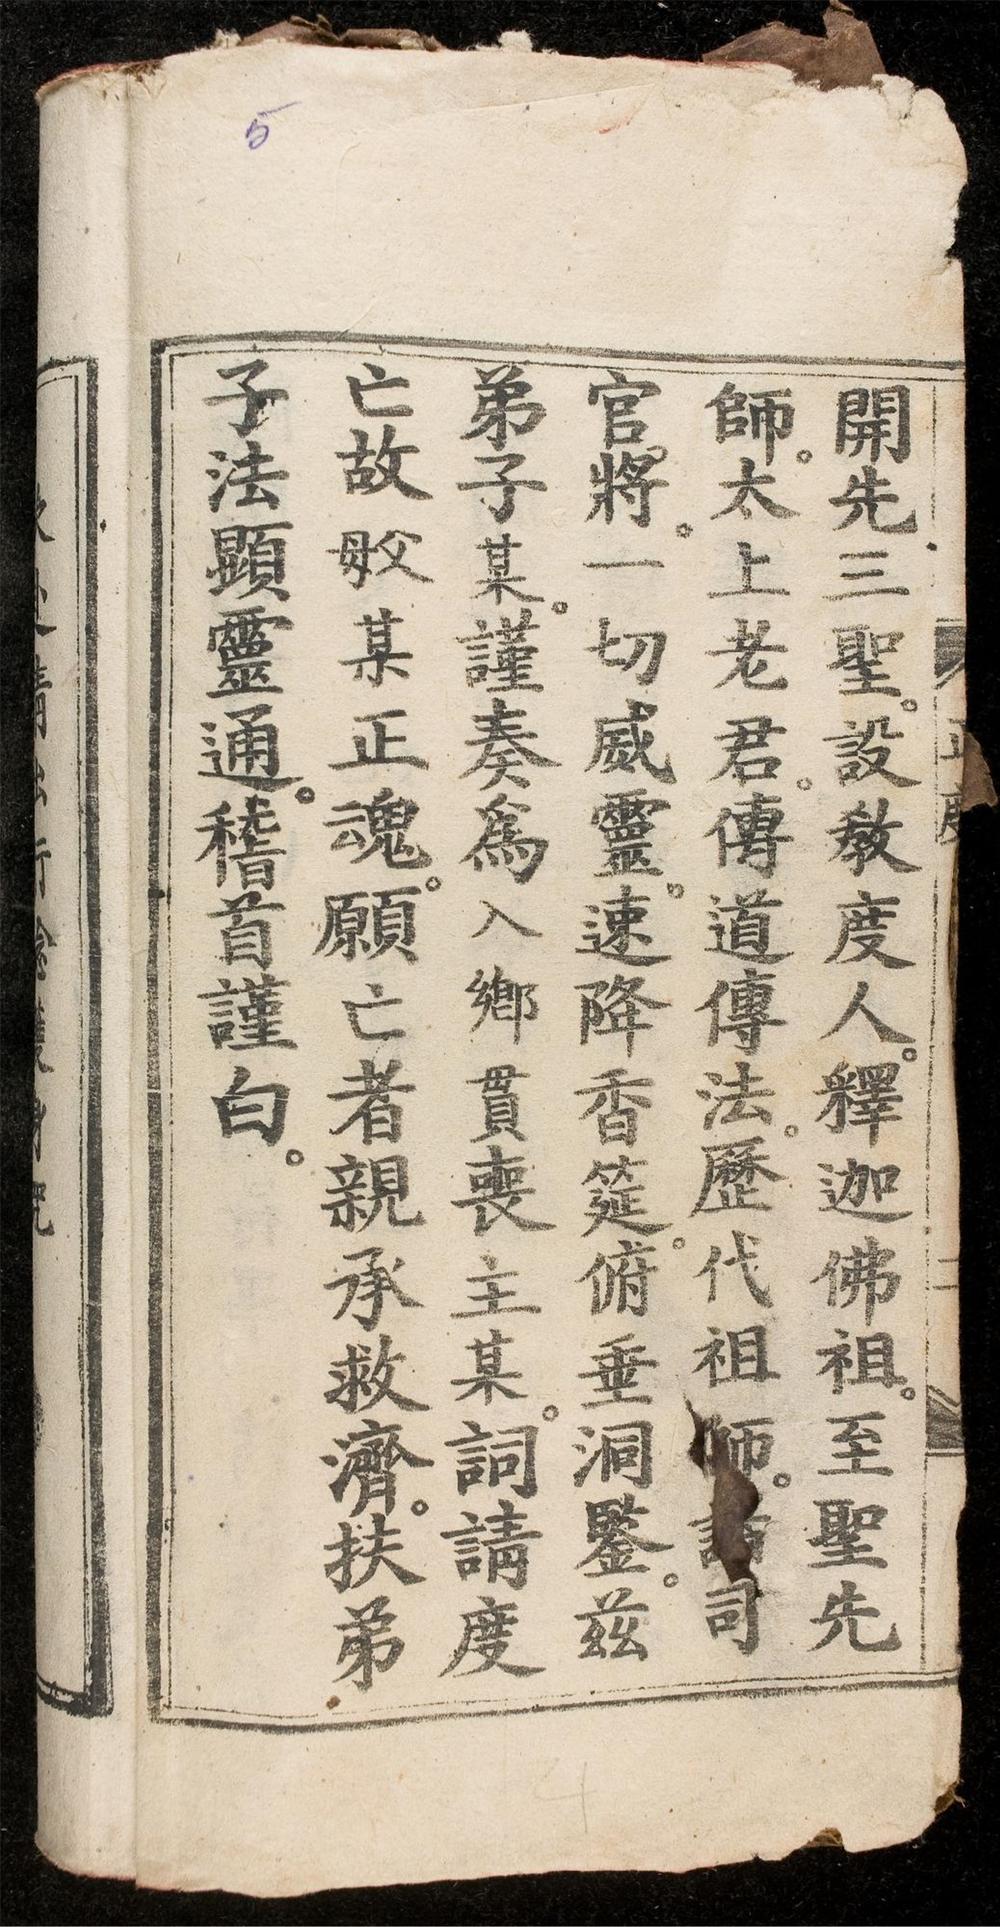 開先三聖。設教度人。釋迦佛祖。至聖先
師。太上老君。傳道傳法。歷代祖師。諸司
官。將。一切威靈。速降香筵。俯垂洞鑒。茲
弟子某。謹奏爲入鄉貫喪主某。詞請度
亡故父母某正魂。願亡者親承救濟。扶弟
子法顯靈通。稽首謹白。
二
5
4